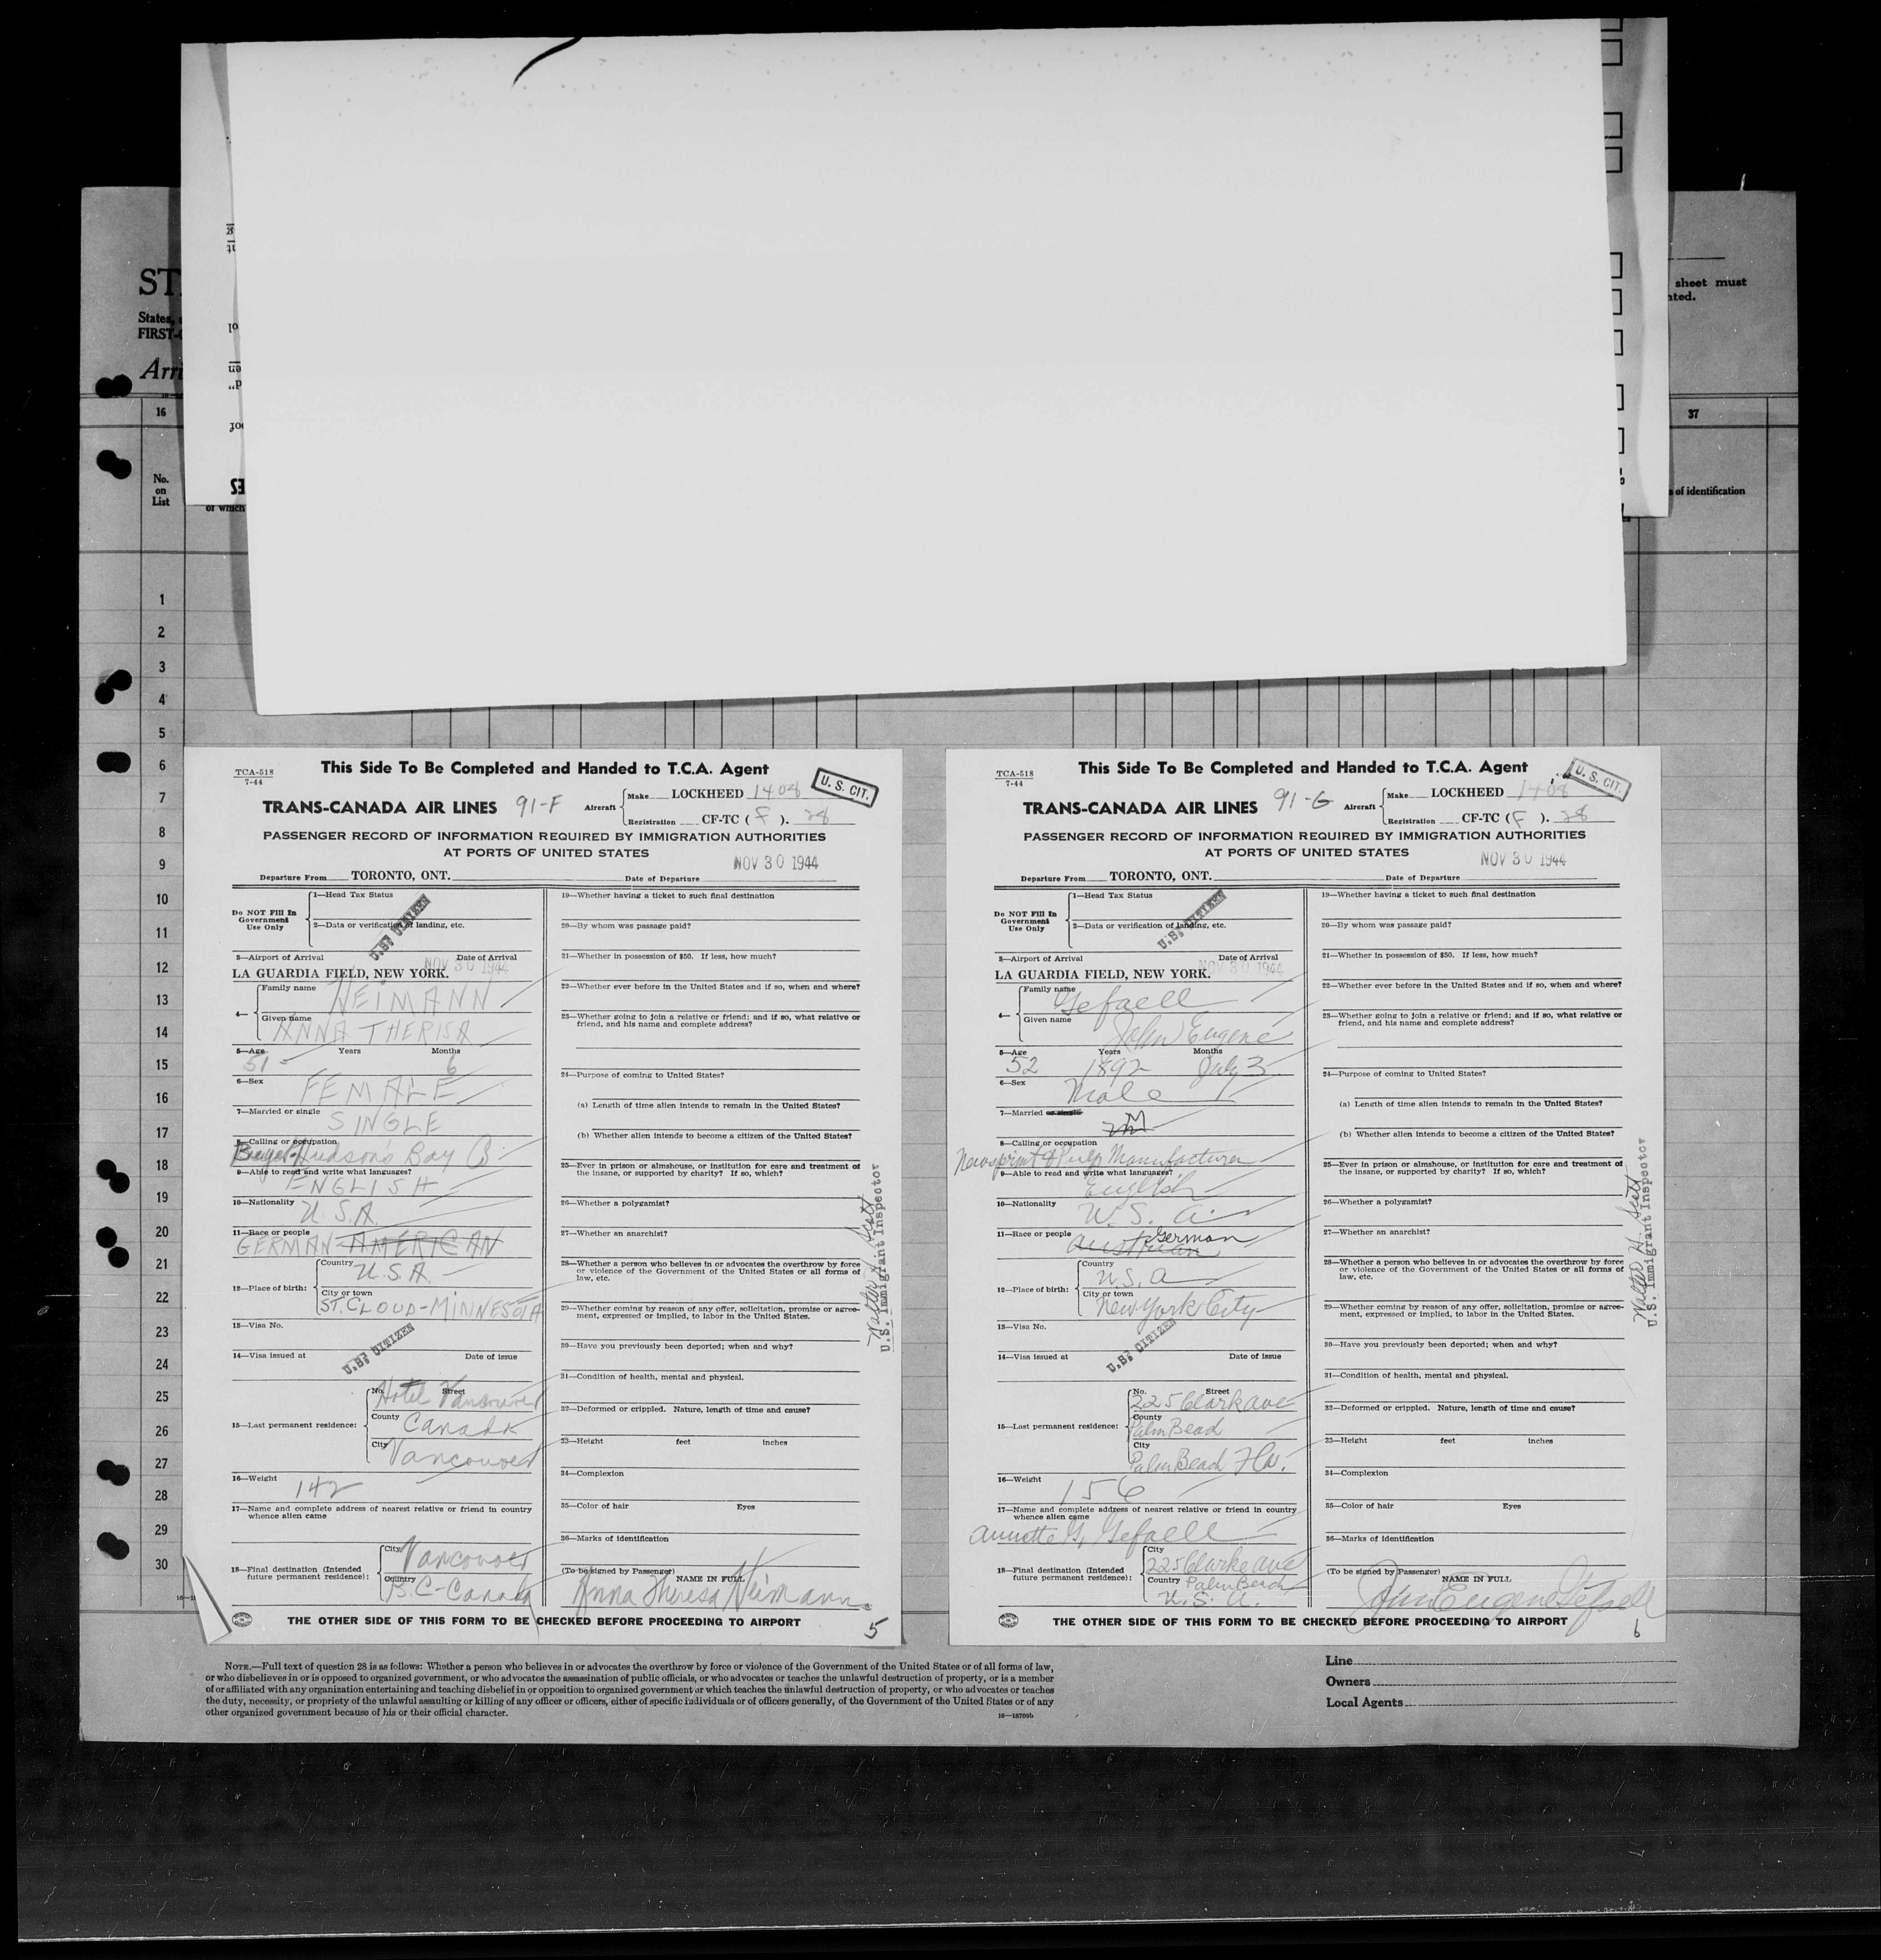 ST
States,
FIRST-
Arri
16
No.
on
List
of which
sheet must
37
of identification
1
2
3
4
5
6
7
8
9
10
11
12
13
14
15
16
17
18
19
20
21
22
23
24
25
26
27
28
29
30
TCA-518
7-44
This Side To Be Completed and Handed to T.C.A. Agent
U. S. CIT.
TRANS-CANADA AIR LINES 91-F Aircraft Make LOCKHEED 1408
Registration CF-TC ( F ). 28
PASSENGER RECORD OF INFORMATION REQUIRED BY IMMIGRATION AUTHORITIES
AT PORTS OF UNITED STATES
NOV 30 1944
Departure From TORONTO, ONT. Date of Departure
Do NOT Fill In
Government
Use Only
1—Head Tax Status
2—Data or verification of landing, etc.
U.S. CITIZEN
3—Airport of Arrival Date of Arrival
LA GUARDIA FIELD, NEW YORK. NOV 30 1944
4— Family name NEIMANN
Given name ANNA THERISA
5—Age Years Months
51 6
6—Sex FEMALE
7—Married or single SINGLE
8—Calling or occupation
Buyer-Hudson's Bay Co.
9—Able to read and write what languages?
ENGLISH
10—Nationality U.S.A.
11—Race or people
GERMAN-AMERICAN
12—Place of birth: Country U.S.A.
City or town
ST. CLOUD-MINNESOTA
13—Visa No.
U.S. CITIZEN
14—Visa issued at Date of issue
15—Last permanent residence: No. Street Hotel Vancouver
County Canada
City Vancouver
16—Weight 142
17—Name and complete address of nearest relative or friend in country
whence alien came
18—Final destination (Intended
future permanent residence): City Vancouver
Country B.C-Canada
19—Whether having a ticket to such final destination
20—By whom was passage paid?
21—Whether in possession of $50. If less, how much?
22—Whether ever before in the United States and if so, when and where?
23—Whether going to join a relative or friend; and if so, what relative or
friend, and his name and complete address?
24—Purpose of coming to United States?
(a) Length of time alien intends to remain in the United States?
(b) Whether alien intends to become a citizen of the United States?
25—Ever in prison or almshouse, or institution for care and treatment of
the insane, or supported by charity? If so, which?
26—Whether a polygamist?
27—Whether an anarchist?
28—Whether a person who believes in or advocates the overthrow by force
or violence of the Government of the United States or all forms of
law, etc.
29—Whether coming by reason of any offer, solicitation, promise or agree-
ment, expressed or implied, to labor in the United States.
30—Have you previously been deported; when and why?
31—Condition of health, mental and physical.
32—Deformed or crippled. Nature, length of time and cause?
33—Height feet inches
34—Complexion
35—Color of hair Eyes
36—Marks of identification
(To be signed by Passenger) NAME IN FULL
Anna Theresa Neimann
Walter H. Scott
U.S. Immigrant Inspector
THE OTHER SIDE OF THIS FORM TO BE CHECKED BEFORE PROCEEDING TO AIRPORT
5
TCA-518
7-44
This Side To Be Completed and Handed to T.C.A. Agent
U. S. CIT.
TRANS-CANADA AIR LINES 91-G Aircraft Make LOCKHEED 1408
Registration CF-TC ( F ). 28
PASSENGER RECORD OF INFORMATION REQUIRED BY IMMIGRATION AUTHORITIES
AT PORTS OF UNITED STATES
NOV 30 1944
Departure From TORONTO, ONT. Date of Departure
Do NOT Fill In
Government
Use Only
1—Head Tax Status
2—Data or verification of landing, etc.
U.S. CITIZEN
3—Airport of Arrival Date of Arrival
LA GUARDIA FIELD, NEW YORK. NOV 30 1944
4— Family name Gefaell
Given name John Eugene
5—Age Years Months
52 1892 July 3
6—Sex Male
7—Married or single M
8—Calling or occupation
Newsprint & Pulp Manufacturer
9—Able to read and write what languages?
English
10—Nationality U.S.A.
11—Race or people German
Austrian
12—Place of birth: Country U.S.A
City or town
New York City
13—Visa No.
U.S. CITIZEN
14—Visa issued at Date of issue
15—Last permanent residence: No. Street 225 Clark ave
County Palm Beach
City Palm Beach Fla.
16—Weight 156
17—Name and complete address of nearest relative or friend in country
whence alien came
Annette G. Gefaell
18—Final destination (Intended
future permanent residence): City 225 Clarke ave
Country Palm Beach
U.S.A.
19—Whether having a ticket to such final destination
20—By whom was passage paid?
21—Whether in possession of $50. If less, how much?
22—Whether ever before in the United States and if so, when and where?
23—Whether going to join a relative or friend; and if so, what relative or
friend, and his name and complete address?
24—Purpose of coming to United States?
(a) Length of time alien intends to remain in the United States?
(b) Whether alien intends to become a citizen of the United States?
25—Ever in prison or almshouse, or institution for care and treatment of
the insane, or supported by charity? If so, which?
26—Whether a polygamist?
27—Whether an anarchist?
28—Whether a person who believes in or advocates the overthrow by force
or violence of the Government of the United States or all forms of
law, etc.
29—Whether coming by reason of any offer, solicitation, promise or agree-
ment, expressed or implied, to labor in the United States.
30—Have you previously been deported; when and why?
31—Condition of health, mental and physical.
32—Deformed or crippled. Nature, length of time and cause?
33—Height feet inches
34—Complexion
35—Color of hair Eyes
36—Marks of identification
(To be signed by Passenger) NAME IN FULL
John Eugene Gefaell
Walter H. Scott
U.S. Immigrant Inspector
THE OTHER SIDE OF THIS FORM TO BE CHECKED BEFORE PROCEEDING TO AIRPORT
6
NOTE.—Full text of question 28 is as follows: Whether a person who believes in or advocates the overthrow by force or violence of the Government of the United States or of all forms of law,
or who disbelieves in or is opposed to organized government, or who advocates the assassination of public officials, or who advocates or teaches the unlawful destruction of property, or is a member
of or affiliated with any organization entertaining and teaching disbelief in or opposition to organized government or which teaches the unlawful destruction of property, or who advocates or teaches
the duty, necessity, or propriety of the unlawful assaulting or killing of any officer or officers, either of specific individuals or of officers generally, of the Government of the United States or of any
other organized government because of his or their official character.
16—18700b
Line
Owners
Local Agents